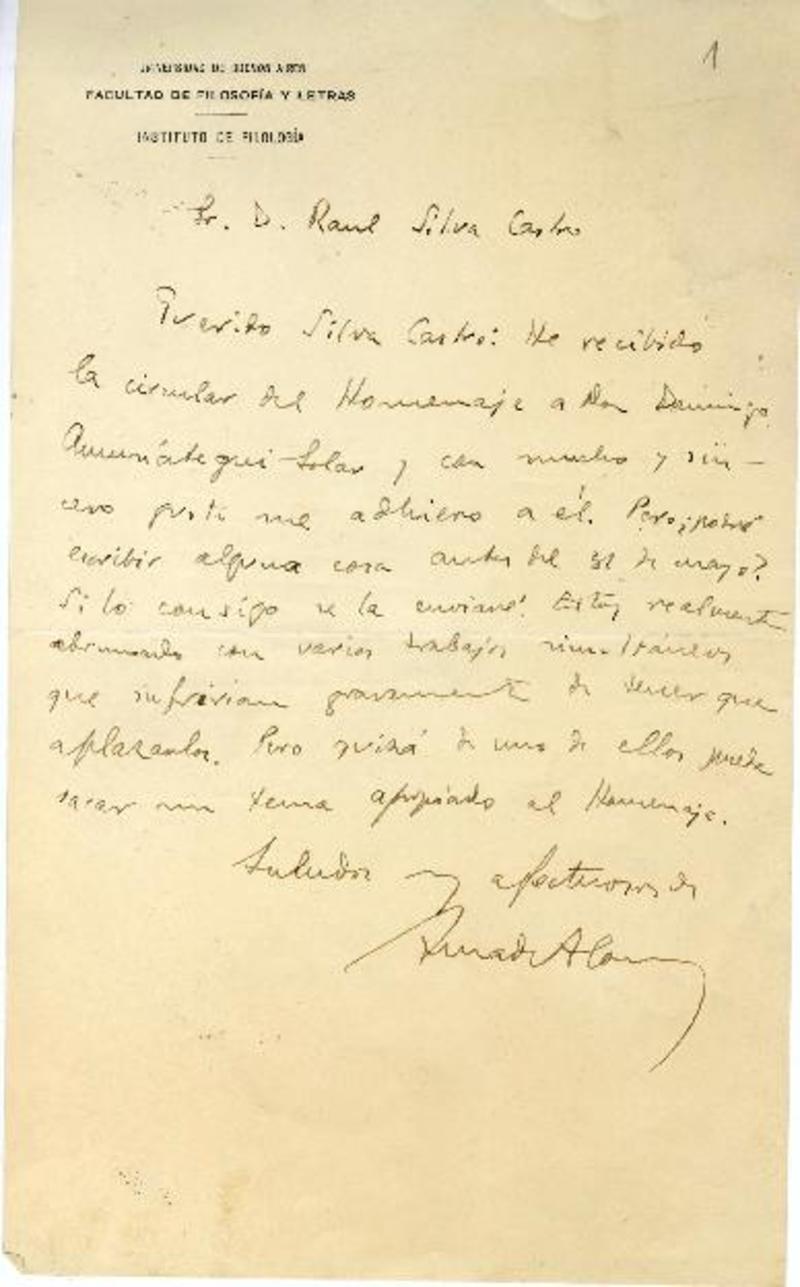 1
UNIVERSIDAD DE BUENOS AIRES
FACULTAD DE FILOSOFÍA Y LETRAS
INSTITUTO DE FILOLOGÍA
Sr. D. Raul Silva Castro
Querido Silva Castro: He recibido
la circular del Homenaje a Don Domingo
Amunátegui Solar y con mucho y sin-
cero gusto me adhiero a él. Pero ¿podré
escribir alguna cosa antes del 31 de mayo?
Si lo consigo se la enviaré. Estoy realmente
abrumado con varios trabajos simultáneos
que sufririan gravemente de tener que
aplazarlos. Pero quizá de uno de ellos pueda
sacar un tema apropiado al Homenaje.
Saludos muy afectuosos de
Amado Alonso